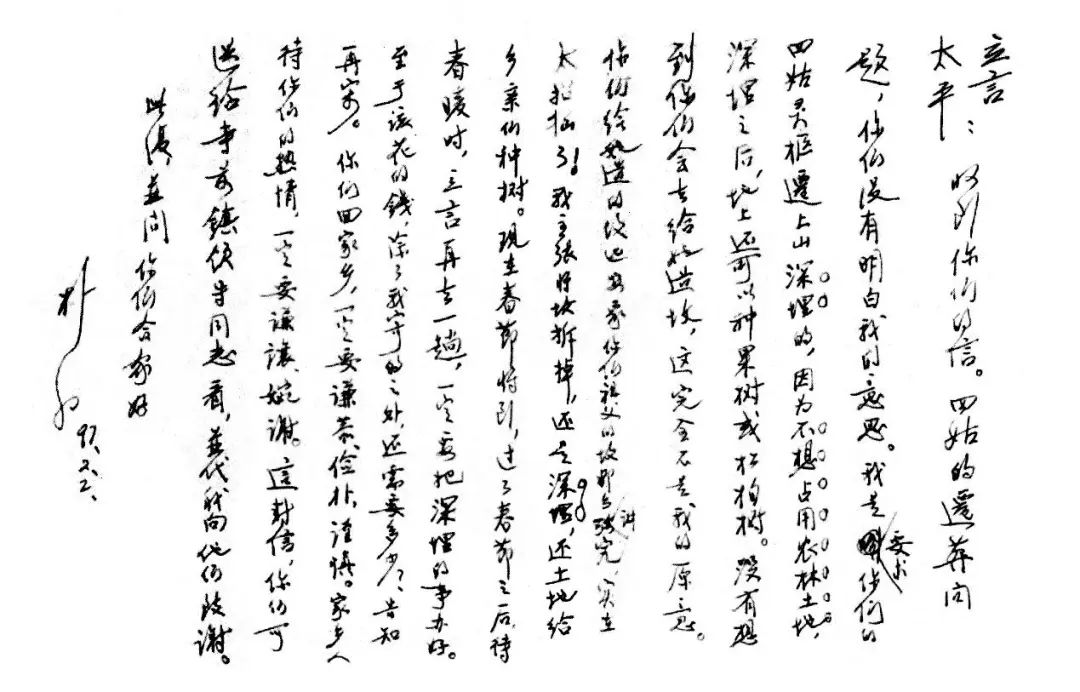 立言
太平：收到你们的信。四姑的遷葬问
题，你们没有明白我的意思。我是要求你们的
四姑灵柩遷上山深埋的，因为不想占用农林土地，
深埋之后，地上还可以种果树或松柏树。没有想
到你们会去给她造坟，这完全不是我的原意。
你们给她造的坟比安葬你们祖父的坟都讲究，实在
太招摇了！我主张将坟拆掉，还是深埋，还土地给
乡亲们种树。现在春节将到，过了春节之后，待
春暖时，立言再去一趟，一定要把深埋的事办好。
至于该花的錢，除了我寄的之外，还需要多少，告知
再寄。你们回家乡，一定要谦恭、俭朴、谨慎。家乡人
待你们的热情，一定要谦讓、婉谢。這封信，你们可
送给寺前镇领导同志看，並代我向他们致谢。
此復並问 你们合家好
朴初
97.2.2.